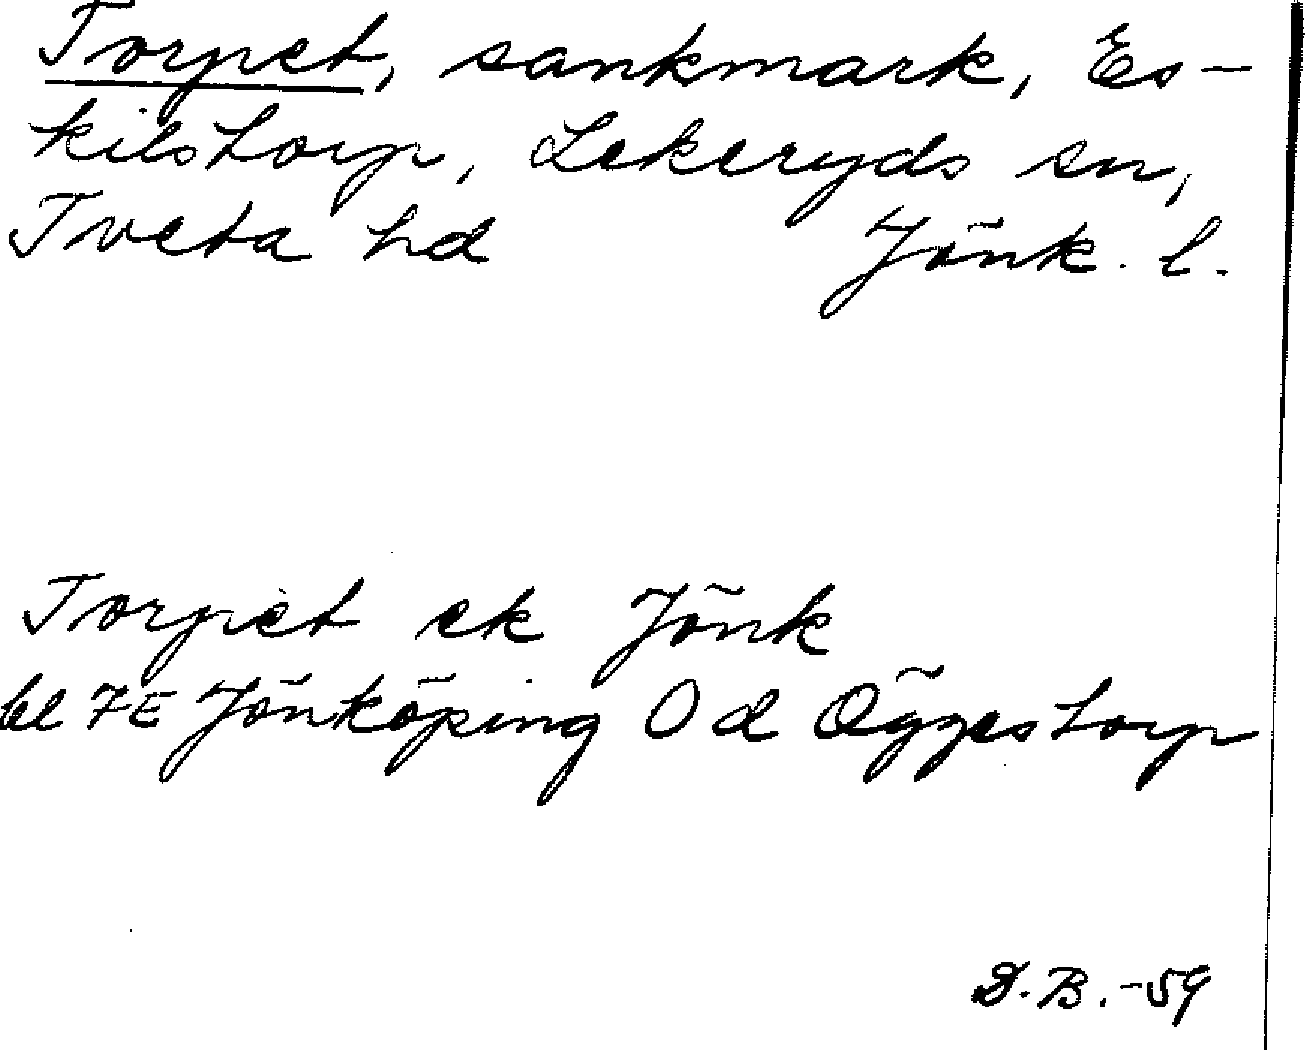 Torpet, sankmark, Es-
kilstorp, Lekeryds sn,
Tveta hd Jönk. l.
Torpet ek Jönk
bl 7E Jönköping Od Öggestorp
D.B.-59